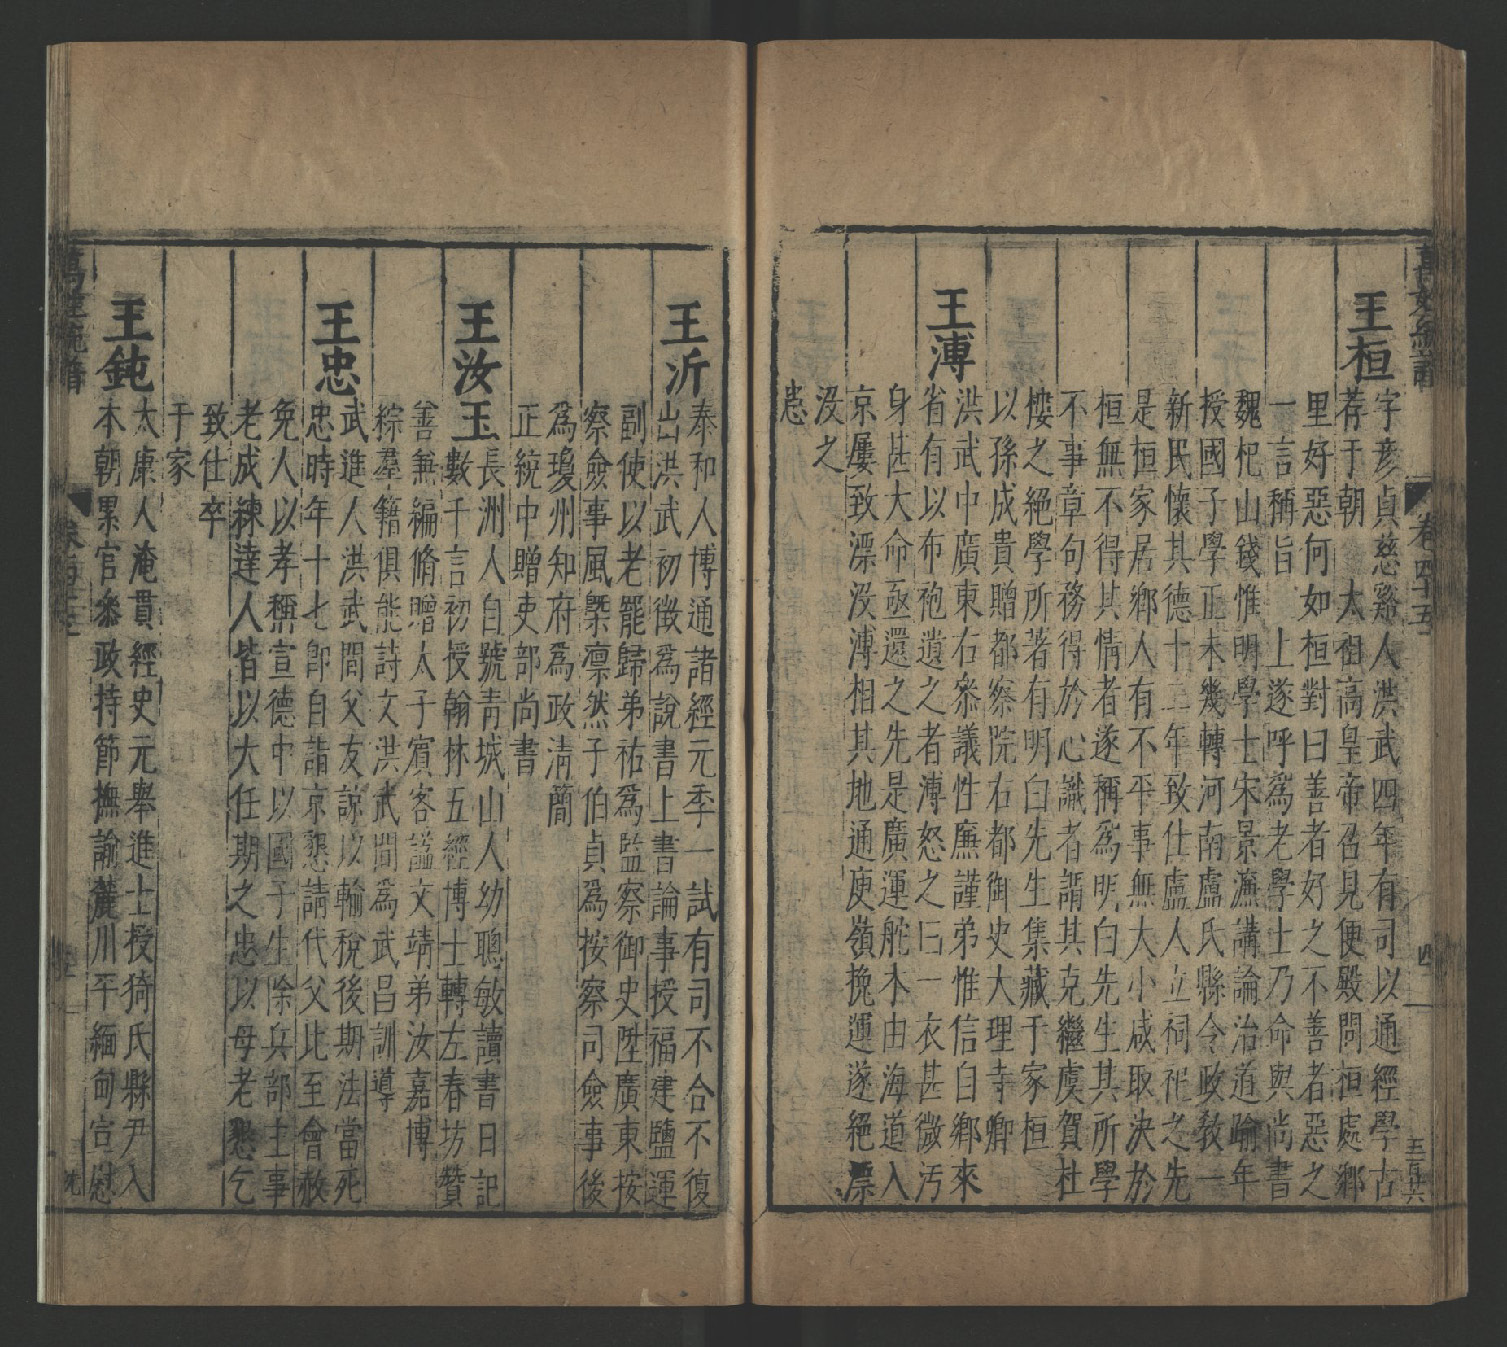 萬姓統譜
卷四十五
四
三百六
王桓
字彥貞慈谿人洪武四年有司以通經學古
荐于朝　太祖高皇帝召見便殿問桓處鄉
里好惡何如桓對曰善者好之不善者惡之
一言稱旨　上遂呼爲老學士乃命與尚書
魏杞山錢惟明學士宋景濂講論治道踰年
授國子學正未幾轉河南盧氏縣令政教一
新民懷其德十三年致仕盧人立祠祀之先
是桓家居鄉人有不平事無大小咸取決於
桓無不得其情者遂稱爲明白先生其所學
不事章句務得於心識者謂其克繼虞賀杜
樓之絕學所著有明白先生集藏于家桓
以孫成貴贈都察院右都御史大理寺卿
王溥
洪武中廣東右叅議性廉謹弟惟信自鄉來
省有以布砲遺之者溥怒之曰一衣甚微污
身甚大命亟還之先是廣運舵木由海道入
京屢致漂沒溥溥相其地通庾嶺挽運遂絕漂
沒之
患
王沂
泰和人博通諸經元季一試有司不合不復
出洪武初徵爲說書上書論事授福建鹽運
副使以老罷歸弟祐爲監察御史陞廣東按
察僉事風槩凛然子伯貞爲按察司僉事後
爲瓊州知府爲政淸簡
正統中贈吏部尚書
王汝玉
長洲人自號青城山人幼聰敏讀書日記
數千言初授翰林五經博士轉左春坊贊
善兼編脩贈太子賓客謚文靖弟汝嘉博
綜羣籍俱能詩文洪武間爲武昌訓導
王忠
武進人洪武間父友諒以輸稅後期法當死
忠時年十七卽自詣京懇請代父比至會赦
免人以孝稱宣德中以國子生除兵部主事
老成練達人皆以大任期之忠以母老懇乞
致仕卒
于家
王鈍
太康人淹貫經史元舉進士授猗氏縣尹入
本朝累官叅政持節撫諭麓川平緬甸宣慰
萬姓統譜